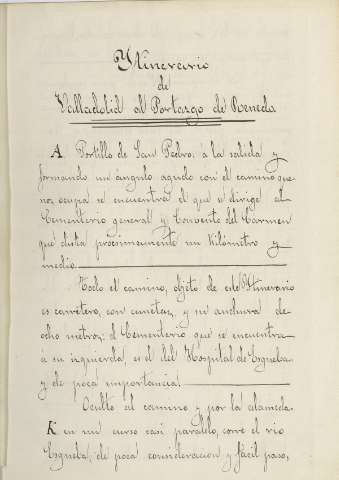 Ytinerario
de
Valladolid al Portazgo de Renedo
A Portillo de San Pedro: á la salida y
formando un ángulo agudo con el camino que
nos ocupa se encuentra el que se dirige al
Cementerio general y Convento del Carmen
que dista procsimamente un Kilómetro y
medio.
Todo el camino, objeto de este Itinerario
es carretero, con cunetas, y su anchura de
ocho metros; el Cementerio que se encuentra
á su izquierda, es el del Hospital de Esgueba
y de poca importancia.
Oculto al camino y por la alameda
K en un curso casi paralelo, corre el rio
Esgueba, de poca consideracion y facil paso,